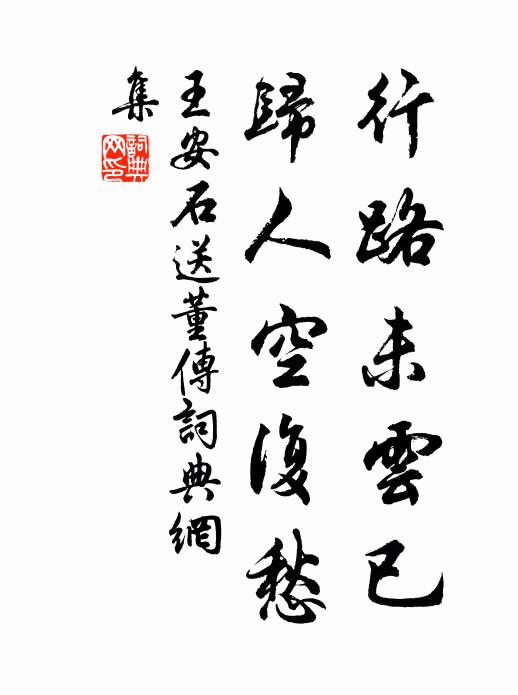 行路未雲已
歸人空復愁
王安石送董傳詞典網
集
詞典
网印